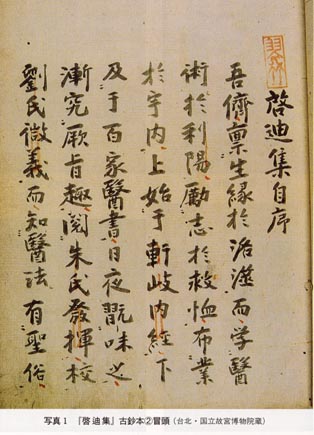 啓迪集自序
吾儕禀生縁於洛澨而学醫
術於利陽勵志於救恤布業
於宇内上始于軒岐内經下
及于百家醫書日夜翫味之
漸究厥旨趣閲朱氏發揮校
劉氏微義而知醫法有聖俗
写真1 『啓迪集』古鈔本②冒頭（台北・国立故宮博物院蔵）